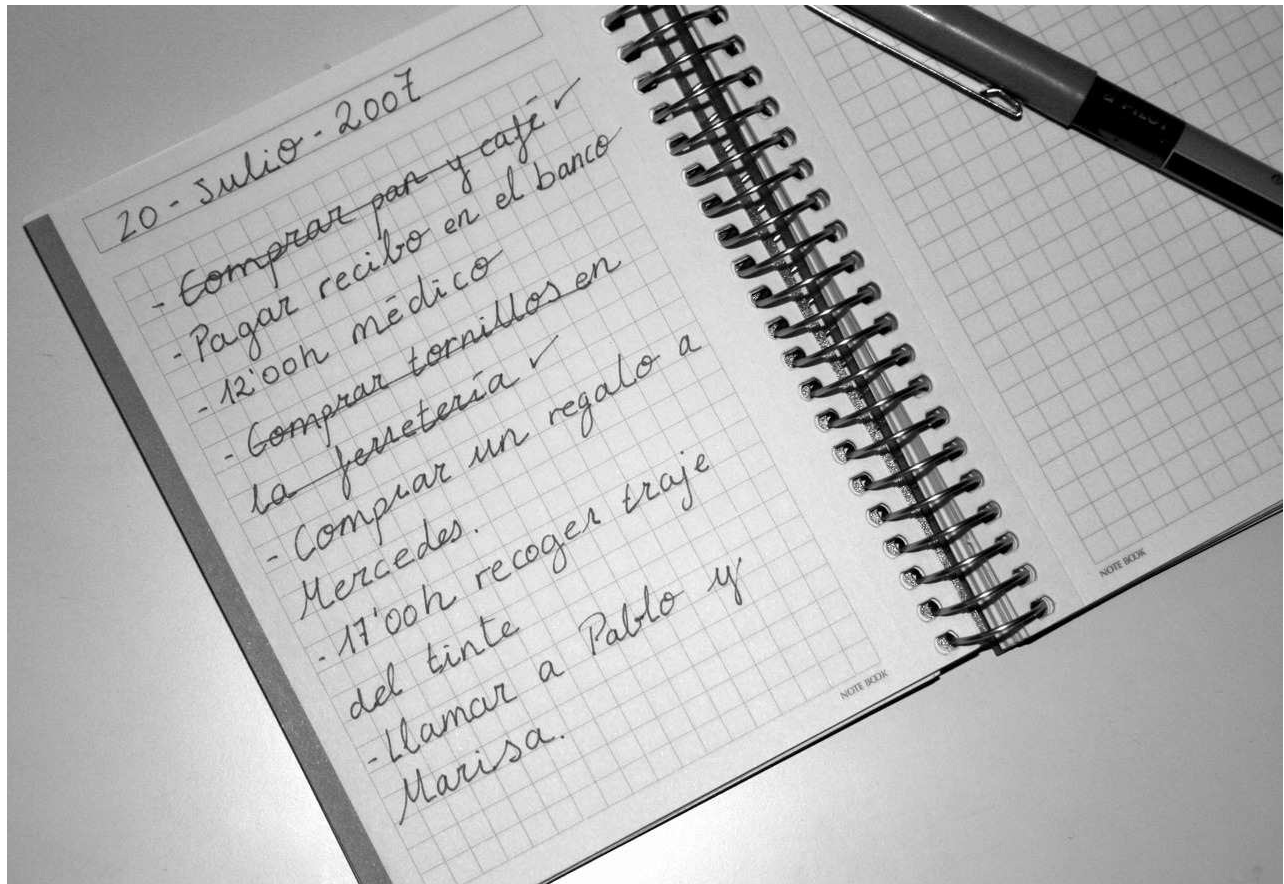 20 - Julio - 2007
- Comprar pan y café ✓
- Pagar recibo en el banco
- 12'00h médico
- Comprar tornillos en
la ferretería ✓
- Comprar un regalo a
Mercedes.
- 17'00h recoger traje
del tinte
- Llamar a Pablo y
Marisa.
NOTE BOOK
NOTE BOOK
PILOT